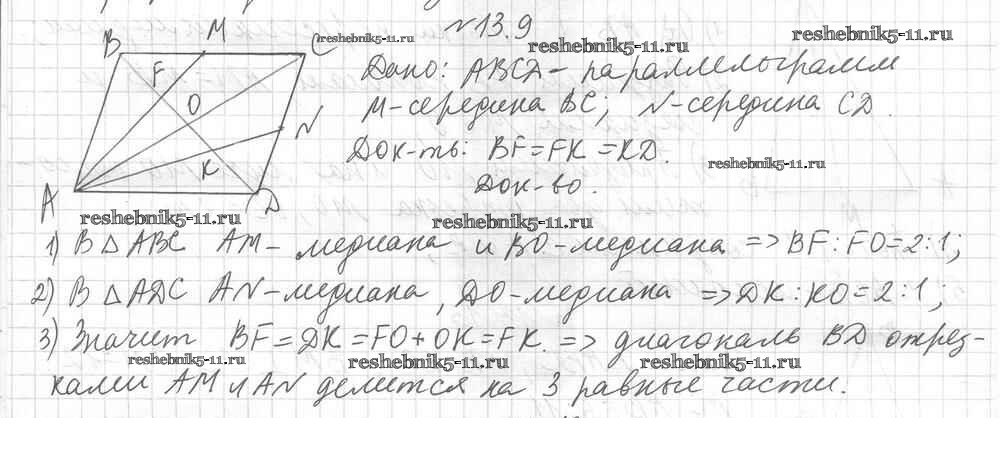 №13.9
B M C
reshebnik5-11.ru
reshebnik5-11.ru
reshebnik5-11.ru
F
O
N
K
A D
Дано: ABCD - параллелограмм
M-середина BC; N-середина CD.
Док-ть: BF=FK=KD.
reshebnik5-11.ru
Док-во.
reshebnik5-11.ru
reshebnik5-11.ru
1) В △ABC AM- медиана и BO-медиана => BF:FO=2:1;
2) В △ADC AN-медиана, DO-медиана => DK:KO=2:1;
3) Значит BF=DK=FO+OK=FK. => диагональ BD отрез-
reshebnik5-11.ru
reshebnik5-11.ru
reshebnik5-11.ru
ками AM и AN делится на 3 равные части.